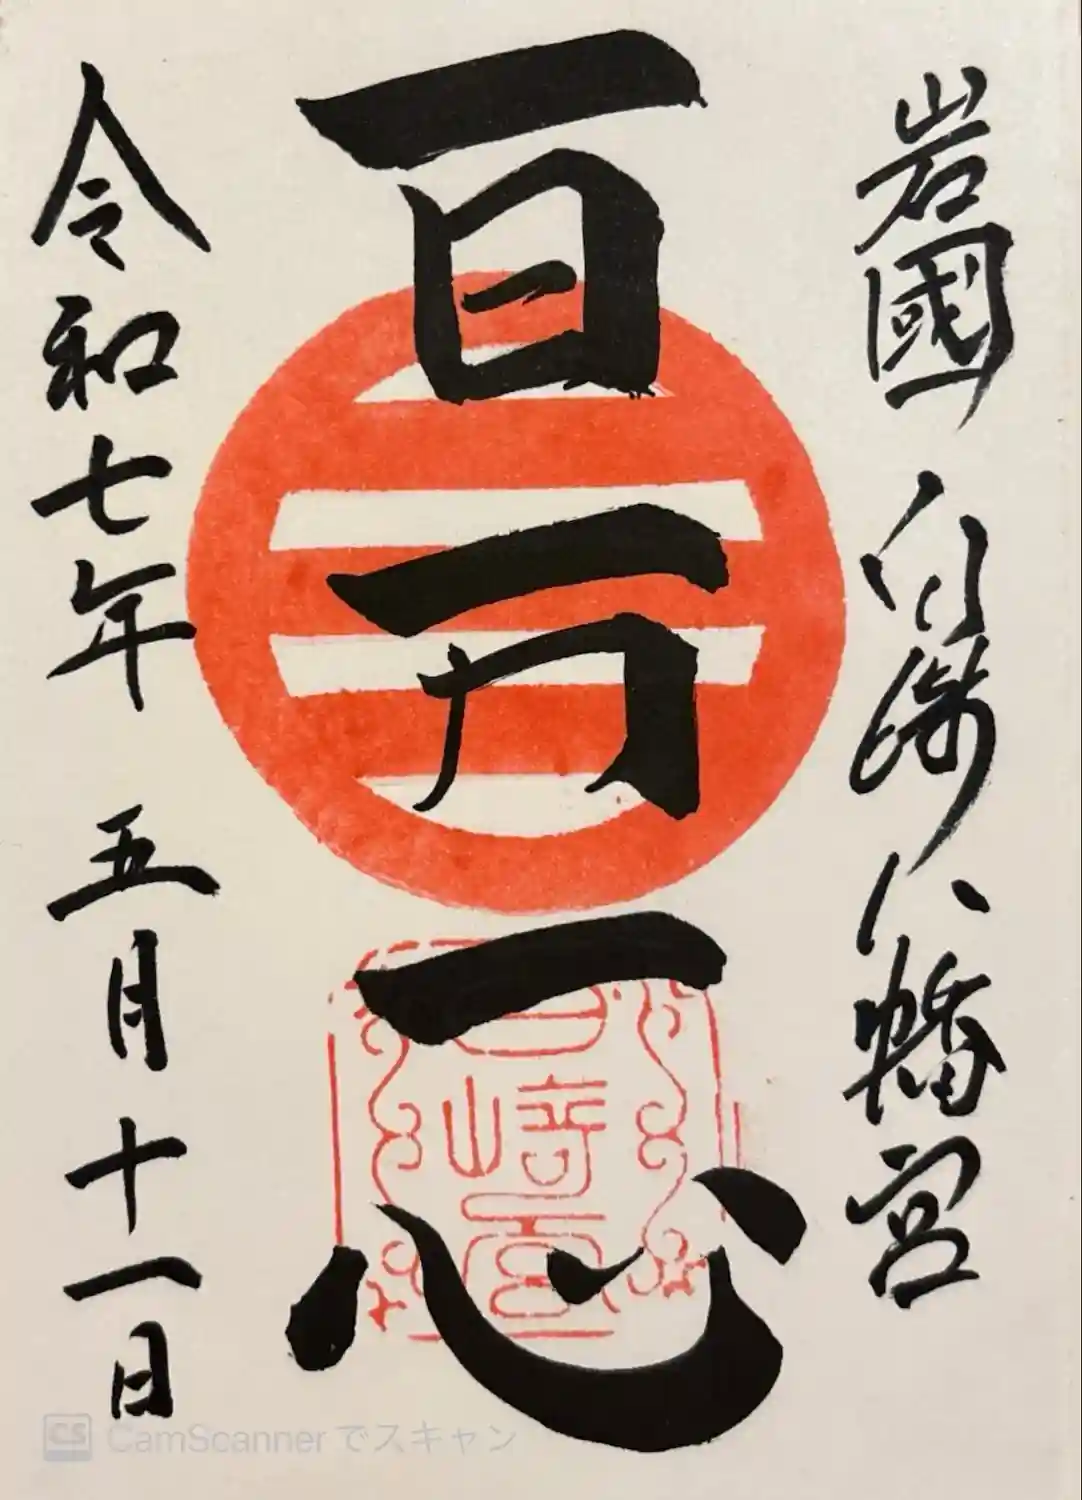 岩國 白﨑八幡宮
百万一心
白﨑宮
令和七年 五月十一日
CamScannerでスキャン